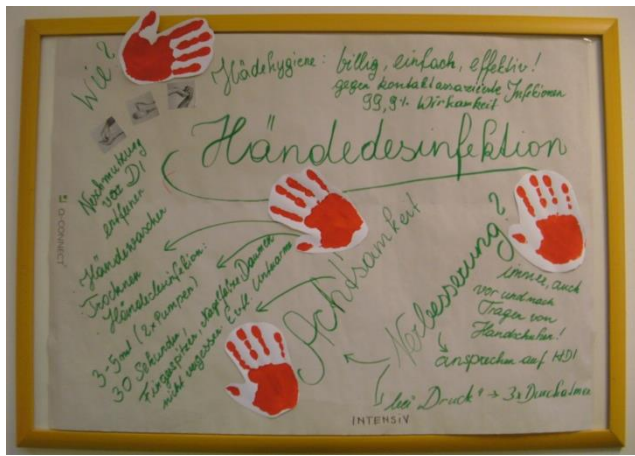 Wie?
Hädehygiene: billig, einfach, effektiv!
gegen kontaktassoziierte Infektionen
99,9% Wirksamkeit
Händedesinfektion
Verschmutzung
vor DI
entfernen
Händewaschen
Trocknen
Händedesinfektion:
3-5ml (2x Pumpen)
30 Sekunden!
Fingerspitzen, Nagelfalze, Daumen
nicht vergessen. Evtl. Unterarme
Achtsamkeit!
Verbesserung?
immer, auch
vor und nach
Tragen von
Handschuhen!
ansprechen auf HD!
bei Druck → 3x Durchatmen
INTENSIV
Q-CONNECT